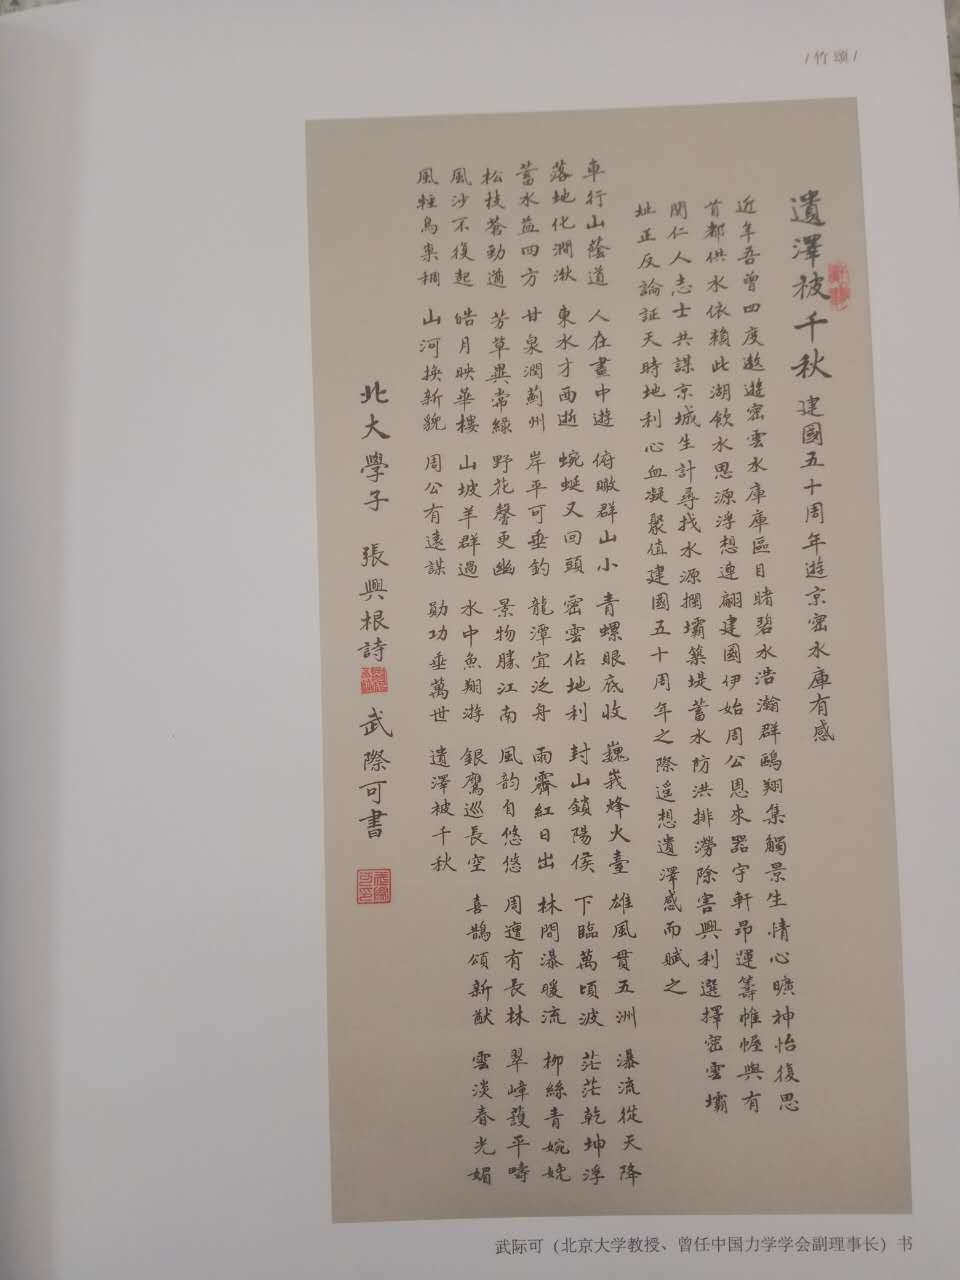 / 竹 颂 /
遺澤被千秋 建國五十周年遊京密水庫有感
近年吾曾四度遨遊密雲水庫庫區目睹碧水浩瀚群鷗翔集觸景生情心曠神怡復思
首都供水依賴此湖飲水思源浮想連翩建國伊始周公恩來器宇軒昂運籌帷幄與有
関仁人志士共謀京城生計尋找水源攔壩築堤蓄水防洪排澇除害興利選擇密雲壩
址正反論証天時地利心血凝聚值建國五十周年之際遥想遺澤感而賦之
車行山蔭道 人在畫中遊 俯瞰群山小 青螺眼底收 巍峩烽火臺 雄風貫五洲 瀑流從天降
落地化澗湫 東水才西逝 蜿蜒又回頭 密雲佔地利 封山鎖陽侯 下臨萬頃波 茫茫乾坤浮
蓄水益四方 甘泉潤薊州 岸平可垂釣 龍潭宜泛舟 雨霽紅日出 林間瀑暖流 柳絲青婉
松枝蒼勁遒 芳草異常綠 野花馨更幽 景物勝江南 風韵自悠悠 周遭有長林 翠嶂護平疇
風沙不復起 皓月映華樓 山坡羊群過 水中魚翔游 銀鷹巡長空 喜鵲頌新猷 雲淡春光媚
風輕鳥巢稠 山河換新貌 周公有遠謀 勛功垂萬世 遺澤被千秋
北大學子 張興根詩 武際可書
武际可（北京大学教授、曾任中国力学学会副理事长）书